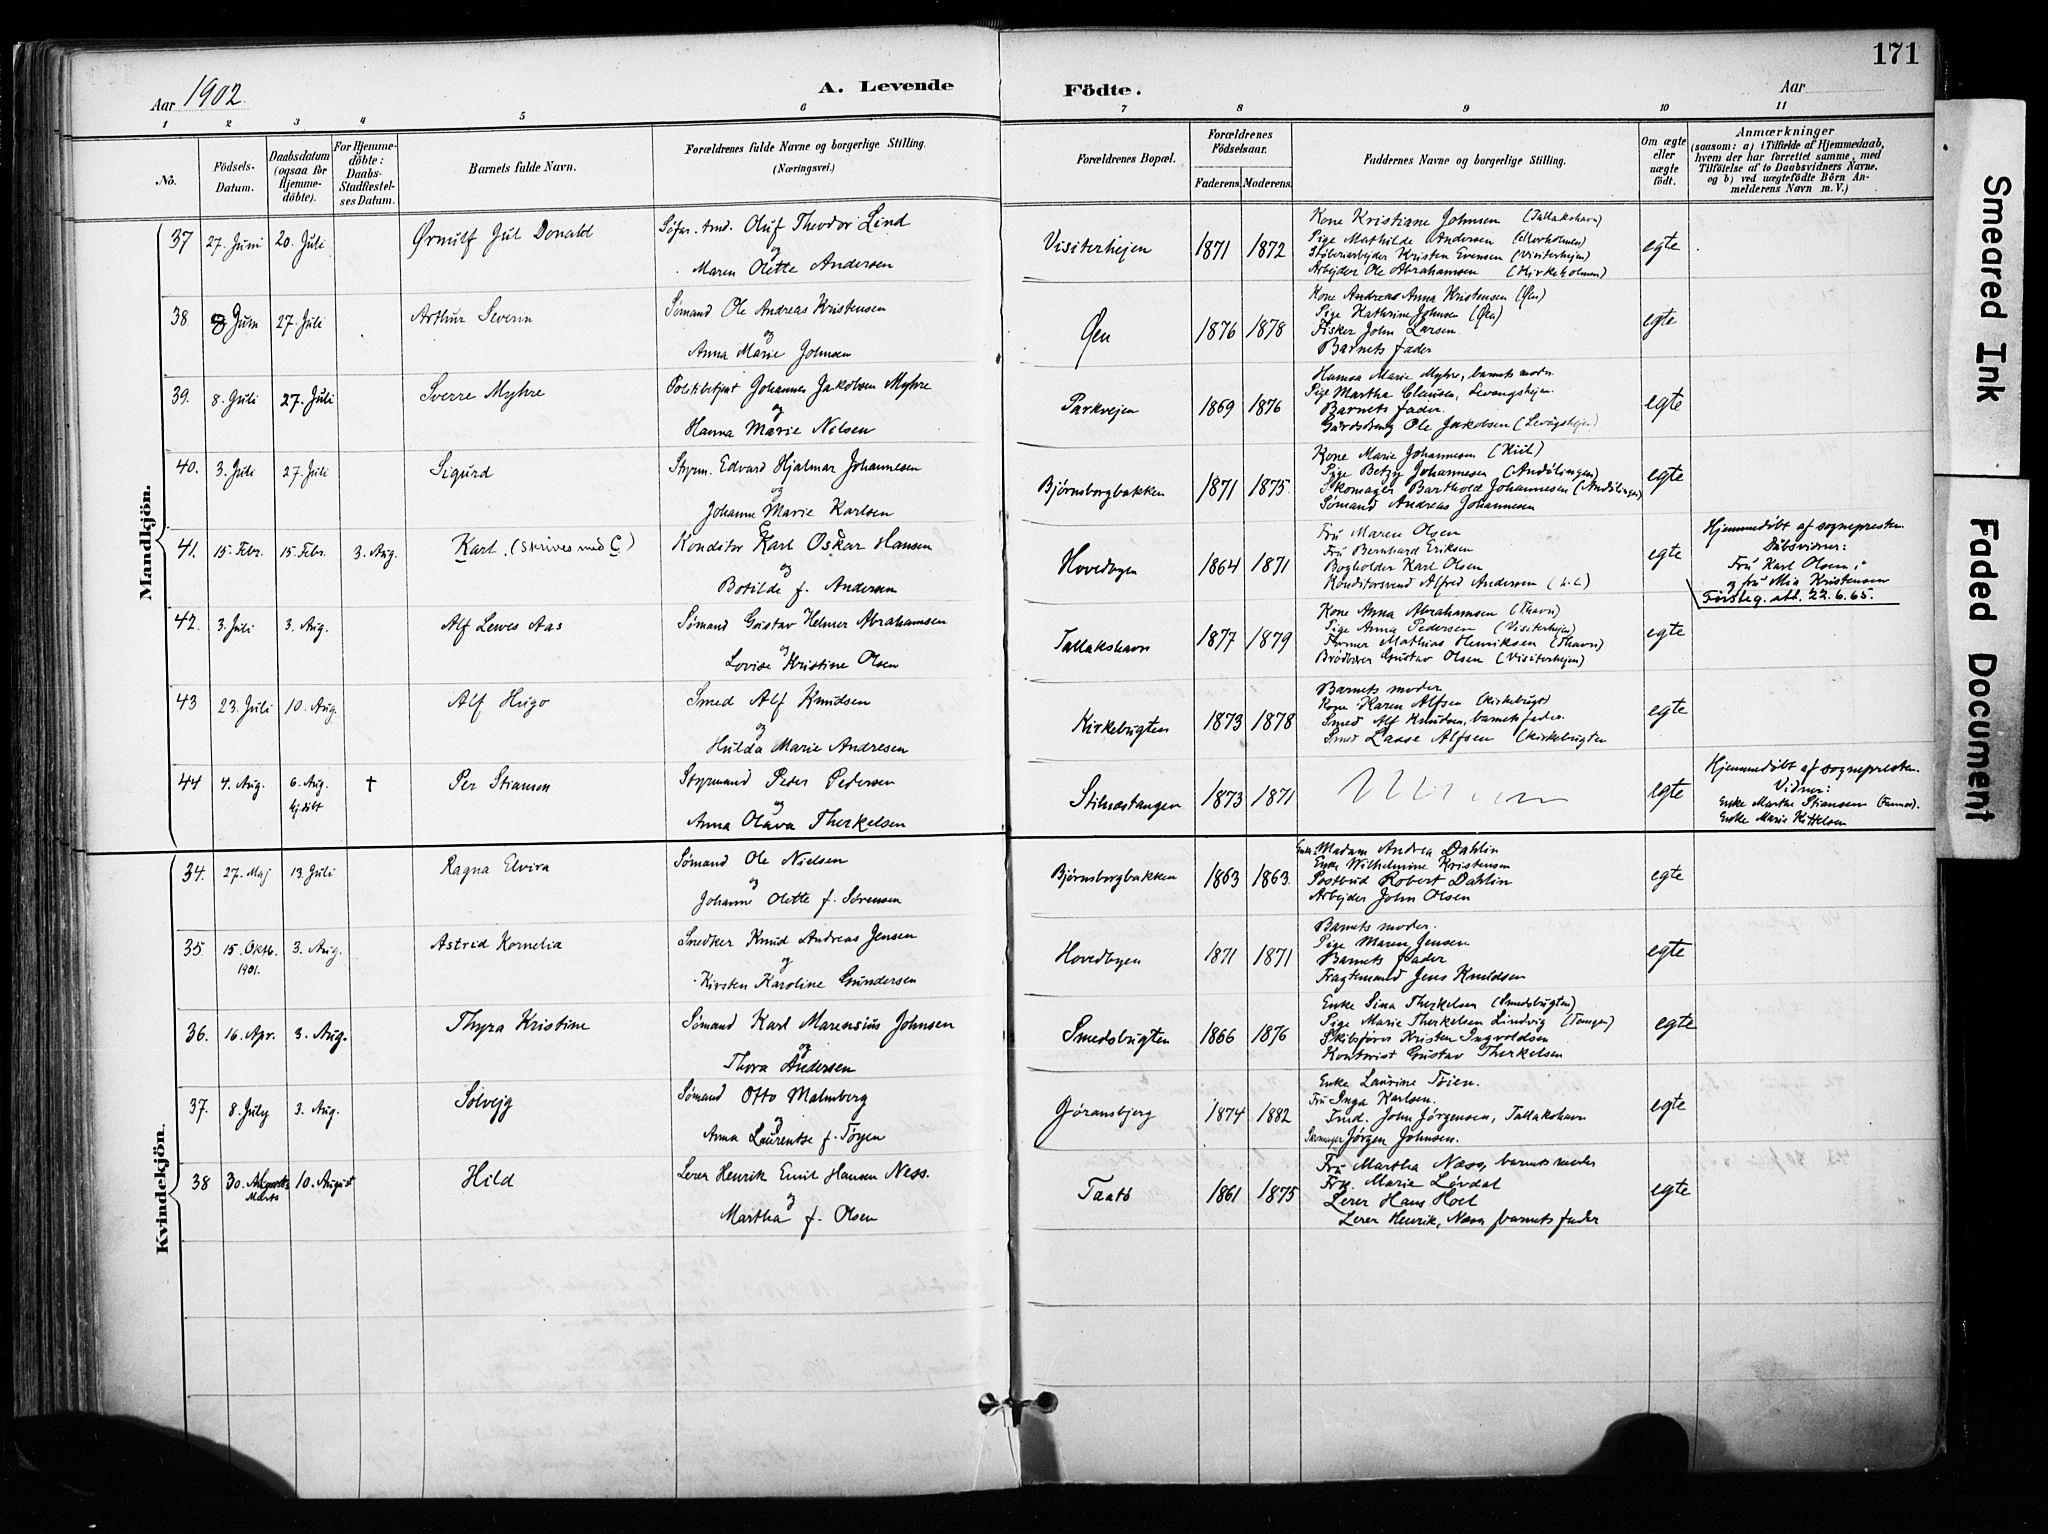 171
Aar 1902. A. Levende Födte. Aar
1 2 3 4 5 6 7 8 9 10 11
No. Födsels-Datum. Daabsdatum (ogsaa for Hjemmedöbte). For Hjemmedöbte: Daabs-Stadfestelses Datum. Barnets fulde Navn. Forældrenes fulde Navne og borgerlige Stilling. (Næringsvei.) Forældrenes Bopæl. Forældrenes Födselsaar. Faderens. Moderens. Faddernes Navne og borgerlige Stilling. Om ægte eller uægte födt. Anmærkninger (saasom: a) i Tilfælde af Hjemmedaab, hvem der har forrettet samme, med Tilföielse af to Daabsvidners Navne, og b) ved uægtefödte Börn Anmelderens Navn m. V.)
Mandkjön.
37 27. Juni 20. Juli Ørnulf Jul Donald Oluf Theodor Lind og Maren Olette Andersen Visiterhejen 1871 1872 egte
Kone Kristiane Johnsen (Tallakshavn)
Pige Mathilde Andersen
Støberiarbejder Kristen Evensen (Visiterhejen)
Arbejder Ole Abrahamsen (Kirkeholmen)
38 8 Juni 27. Juli Arthur Severin Sømand Ole Andreas Kristensen og Anna Marie Johnsen Øen 1876 1878 egte
Kone Andreas Anna Kristensen (Øen)
Pige Kathrine Johnsen (Øen)
Fisker John Larsen.
Barnets fader
39. 8. Juli 27. Juli Sverre Myhre Politibetjent Johannes Jakobsen Myhre og Hanna Marie Nilsen Parkvejen 1869 1876 egte
Hanna Marie Myhre, barnets moder
Pige Martha Clausen, Levangshejen.
Barnets fader.
Gårdsdreng Ole Jakobsen
40. 3. Juli 27. Juli Sigurd Styrm. Edvard Hjalmar Johannesen og Johanne Marie Karlsen Bjørnsborgbakken 1871 1875. egte
Kone Marie Johannesen
Pige Betzy Johannesen
Skomager Barthold Johannesen
Sømand Andreas Johannesen
41. 15. Febr. 15. Febr. 3. Aug. Karl. (Skrives med C) Konditor Karl Oskar Hansen og Botilde f. Andersen Hovedbyen 1864 1871 egte
Fru Maren Olsen
Fru Bernhard Eriksen
Bogholder Karl Olsen
Konditorsvend Alfred Andersen
Hjemmedøbt af sognepresten
Dåbsvidner:
Fru Karl Olsen
og fru Mia Kristensen
Førsteg. att. 22.6.65.
42. 3. Juli 3. Aug. Alf Lewes Aas Sømand Gustav Helmer Abrahamsen og Lovise Kristine Olsen Tallakshavn 1877 1879 egte
Kone Anna Abrahamsen (Thavn)
Pige Anna Pedersen (Visiterhejen)
Mathias Henriksen (Thavn)
Brødbærer Gustav Olsen (Visiterhejen)
43 23. Juli 10. Aug. Alf Hugo Smed Alf Knudsen og Hulda Marie Andresen Kirkebugten 1873 1878 egte
Barnets moder
Kone Karen Alfsen (Kirkebugt)
Smed Alf Knudsen, barnets fader.
Smed Lasse Alfsen (Kirkebugten
44 4. Aug. 6. Aug. hj.døbt † Per Stiansen Styrmand Peter Pedersen og Anna Olava Therkelsen Stilnæstangen 1873 1871 egte
Hjemmedøbt af sognepresten.
Vidner:
Enke Marthe Stiansen
Enke Marie Kittelsen
Kvindekjön.
34. 27. Maj 13. Juli Ragna Elvira Sømand Ole Nielsen og Johanne Olette f. Sørensen Bjørnsborgbakken 1863 1863. egte
Madam Andrea Dahlin
Enke Wilhelmine Kristensen
Postbud Robert Dahlin
Arbejder John Olsen
35. 15. Oktb. 1901. 3. Aug. Astrid Kornelia Snedker Knud Andreas Jensen og Kirsten Karoline Gundersen Hovedbyen 1871 1871 egte
Barnets moder.
Pige Maren Jensen
Barnets fader
Fragtemand Jens Knudsen
36. 16. Apr. 3. Aug. Thyra Kristine Sømand Karl Marensius Johnsen og Thora Andersen Smedsbugten 1866 1876 egte
Enke Sina Therkelsen (Smedsbugten)
Pige Marie Therkelsen Lindvig (Tangen)
Skibsfører Kristen Ingvoldsen
Kontorist Gustav Therkelsen
37. 8. July 3. Aug. Solvejg Sømand Otto Malmberg og Anna Laurentse f. Tøyen Gøransbjerg 1874 1882 egte
Enke Laurine Tøien.
Fru Inga Karlsen.
Tmd. John Jørgensen, Tallakshavn
Skomager Jørgen Johnsen.
38 30. Marts 10. August Hild Lærer Henrik Emil Hansen Ness. og Martha f. Olsen Taatø 1861 1875 egte
Fru Martha Næss, barnets moder
Frk. Marie Løvdal
Lærer Hans Hoel
Lærer Henrik Næss barnets fader
Smeared Ink
Faded Document